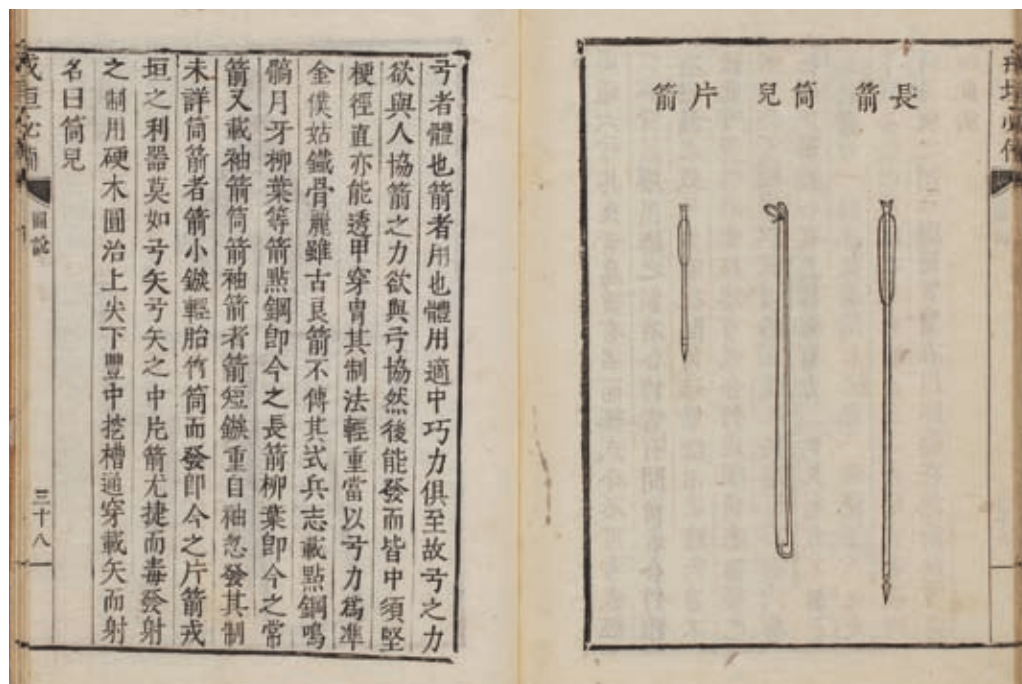 長箭
筒兒
片箭
弓者體也箭者用也體用適中巧力俱至故弓之力
欲與人協箭之力欲與弓協然後能發而皆中須堅
梗徑直亦能透甲穿冑其制法輕重當以弓力爲準
金僕姑鐵骨麗雖古良箭不傳其式兵志載點鋼鳴
鏑月牙柳葉等箭點鋼卽今之長箭柳葉卽今之常
箭又載袖箭筒箭袖箭者箭短鏃重自袖忽發其制
未詳筒箭者箭小鏃輕胎竹筒而發卽今之片箭戎
垣之利器莫如弓矢弓矢之中片箭尤捷而毒發射
之制用硬木圓治上尖下豐中挖槽通穿載矢而射
名曰筒兒
圖說
三十八